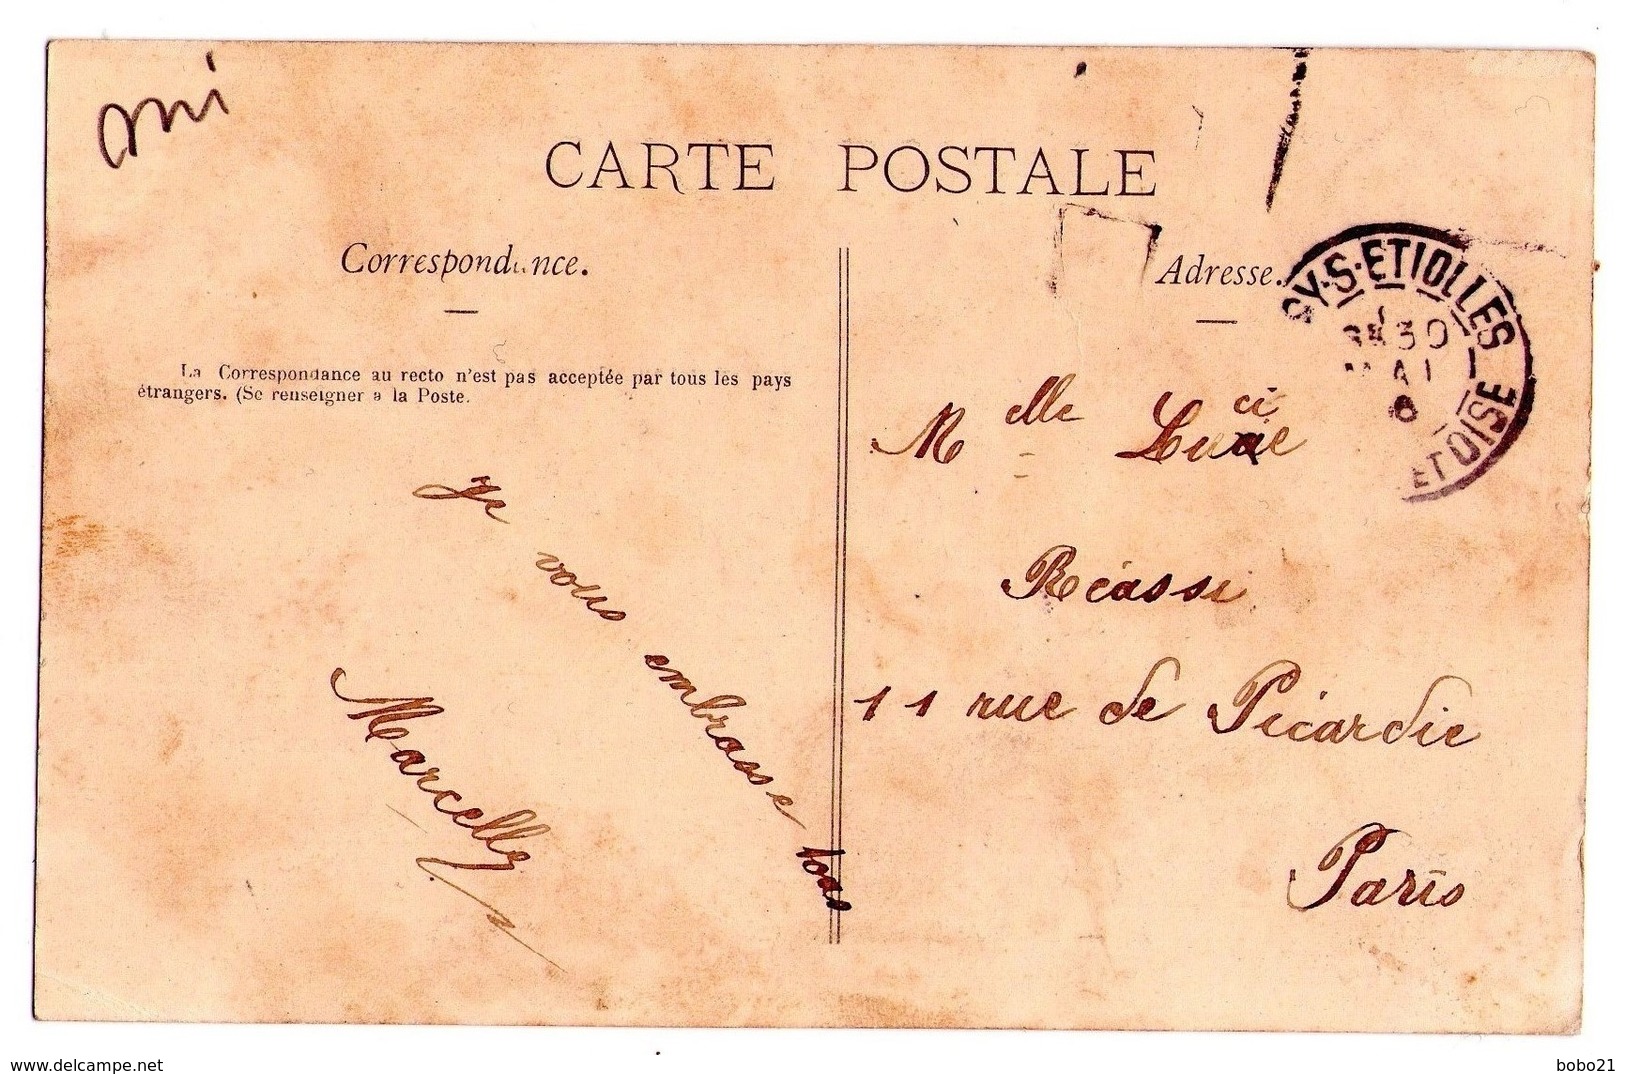 CARTE POSTALE
Correspondance.
La Correspondance au recto n'est pas acceptée par tous les pays
étrangers. (Se renseigner a la Poste.
Je vous embrasse tous
Marcelle
Adresse.
SY-S-ETIOLLES
30
MAI
ET OISE
Melle Lucie
11 rue de Picardie
Paris
www.delcampe.net
bobo21